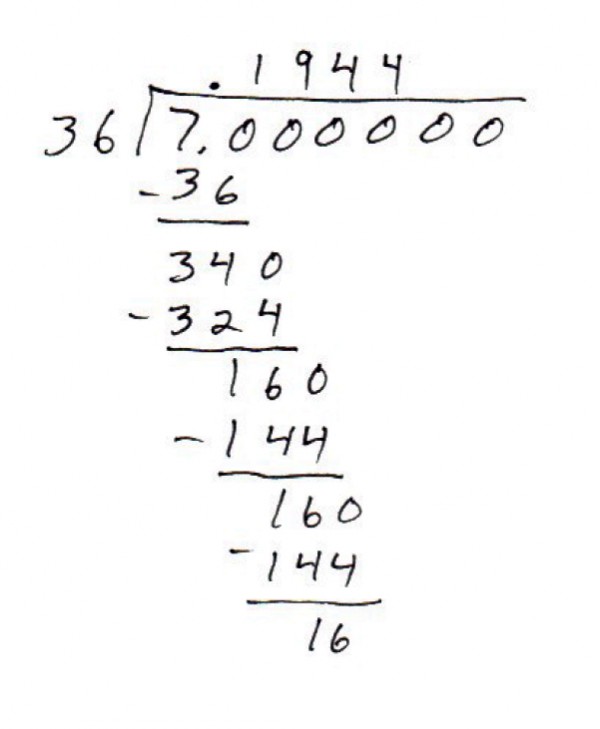 .1944
36 7.000000
-36
340
-324
160
-144
160
-144
16